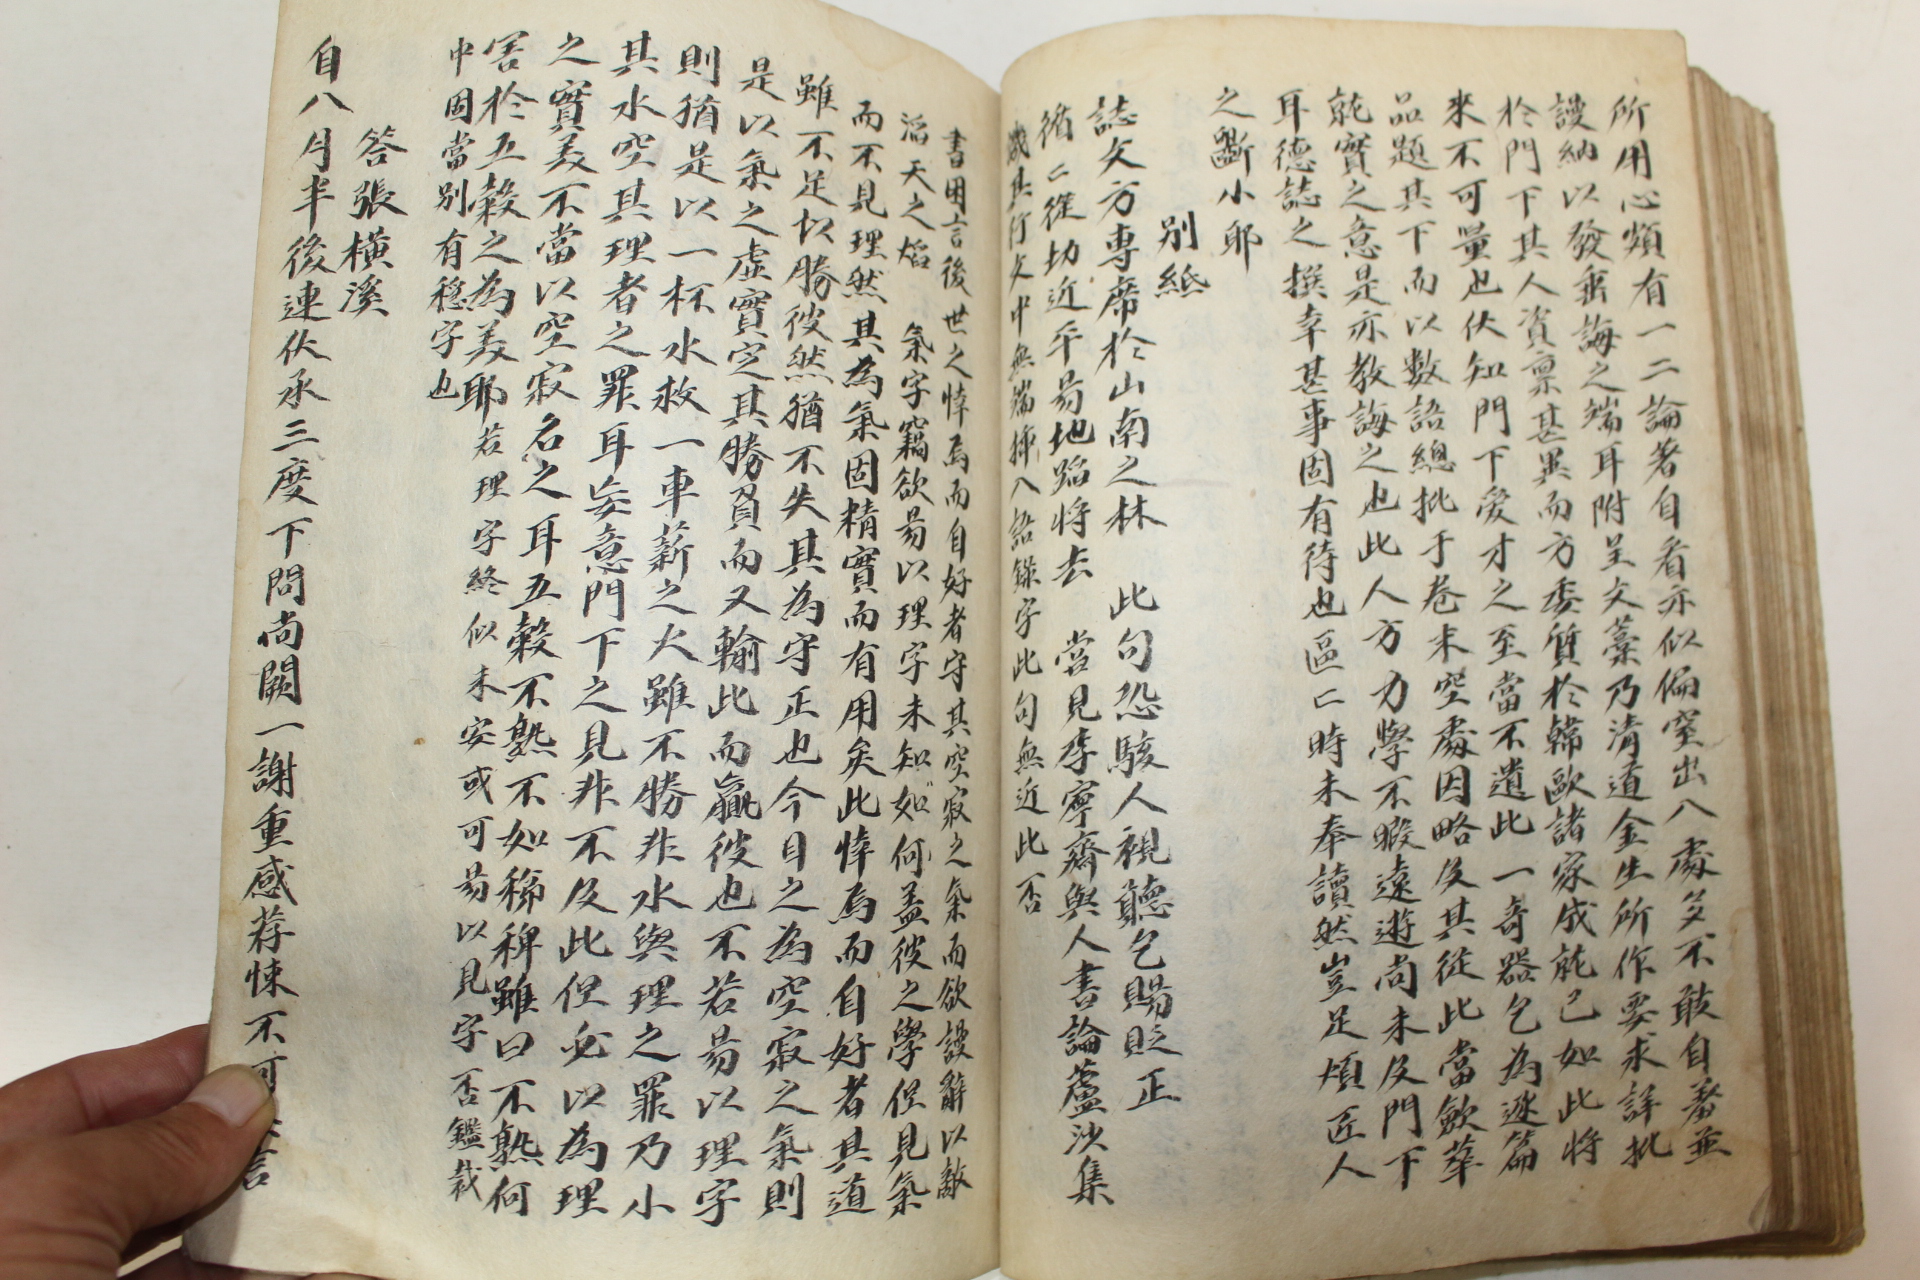 所用心頗有一二論著自看亦似偏窒出八處多不敢自發並
謾納以發垂誨之端耳附呈文藁乃清道金生所作要求詳批
於門下其人資稟甚異而方委質於韓歐諸家成就已如此將
來不可量也伏知門下愛才之至當不遺此一奇器乞為逐篇
品題其下而以數語總批于卷末空處因略及其從此當歛華
就實之意是亦教誨之也此人方力學不暇遠遊尚未及門下
耳德誌之撰幸甚事固有待也區〻時未奉讀然豈足煩匠人
之斲小郮
別紙
誌文方專席於山南之林 此句恐駭人視聽乞賜貶正
循〻從切近平易地蹈將去 嘗見李寧齋與人書論蘆沙集
譏其行文中無端揷入語錄字此句無近此否
書困言後世之悻焉而自好者守其空寂之氣而欲謾辭以敵
滔天之焰 氣字竊欲易以理字未知如何盖彼之學但見氣
而不見理然其為氣固精實而有用矣此悻焉而自好者其道
雖不足以勝彼然猶不失其為守正也今目之為空寂之氣則
是以氣之虛實定其勝負而又輸此而贏彼也不若易以理字
則猶是以一杯水救一車薪之火雖不勝非水與理之罪乃小
其水空其理者之罪耳妄意門下之見非不及此但必以為理
之實美不當以空寂名之耳五穀不熟不如稊稗雖曰不熟何
害於五穀之為美耶若理字終似未安或可易以見字否鑑裁
中固當別有穩字也
答張橫溪
自八月半後連伏承三度下問尚闕一謝重感荐悚不可言